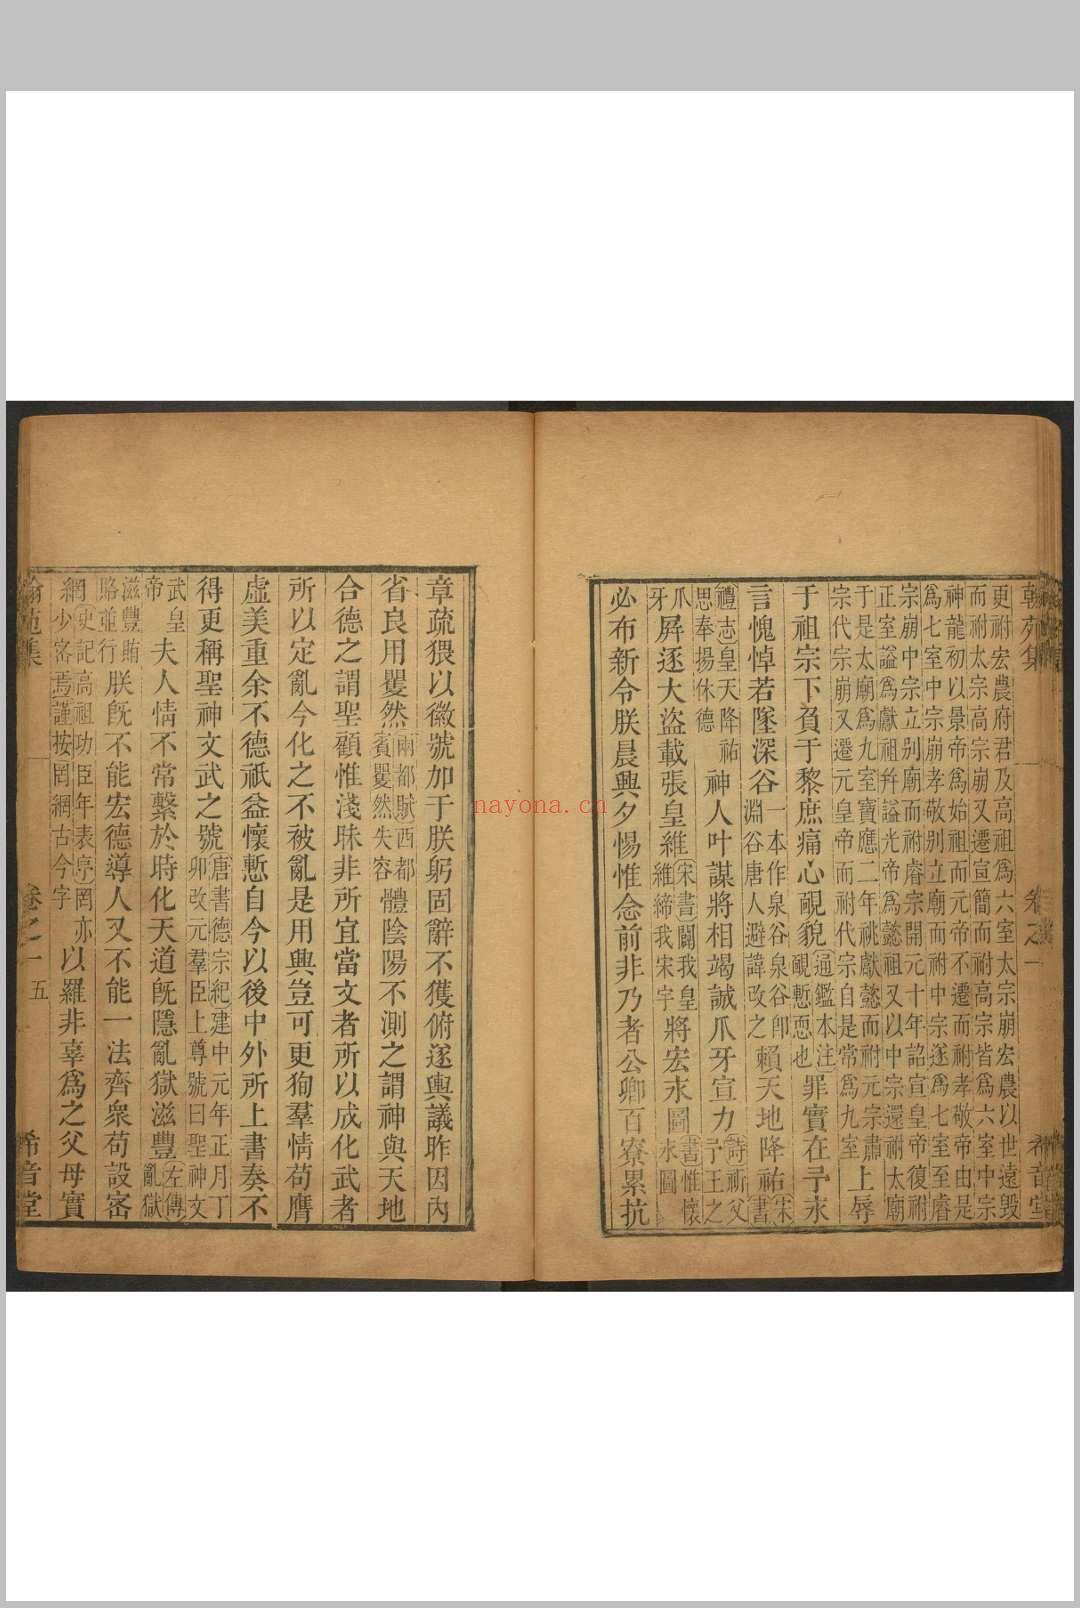 翰苑集 卷之一 希音堂
更祔宏農府君及高祖爲六室太宗崩宏農以世遠毀
而祔太宗高宗崩又遷宣簡而祔高宗皆爲六室中宗
神龍初以景帝爲始祖而元帝不遷而祔孝敬帝由是
爲七室中宗崩孝敬别立廟而祔中宗遂爲七室至睿
宗崩中宗立别廟而祔睿宗開元十年詔宣皇帝復祔
正室謚爲獻祖幷謚光帝爲懿祖又以中宗還祔太廟
于是太廟爲九室寶應二年祧獻懿而祔元宗肅
宗代宗崩又遷元皇帝而祔代宗自是常爲九室
上辱
于祖宗下負于黎庶痛心靦貌
通鑑本注
靦慙恧也
罪實在予永
言愧悼若墜深谷
一本作泉谷泉谷卽
淵谷唐人避諱改之
賴天地降祐
宋書
禮志皇天降祐
思奉揚休德
神人叶謀將相竭誠爪牙宣力
詩祈父
予王之
爪
牙
屏逐大盜載張皇維
宋書闢我皇
維締我宋宇
將宏永圖
書惟懷
永圖
必布新令朕晨興夕惕惟念前非乃者公卿百寮累抗
章疏猥以徽號加于朕躬固辭不獲俯遂輿議昨因內
省良用矍然
兩都賦西都
賓矍然失容
體陰陽不測之謂神與天地
合德之謂聖顧惟淺昧非所宜當文者所以成化武者
所以定亂今化之不被亂是用興豈可更狥羣情苟膺
虛美重余不德祇益懷慙自今以後中外所上書奏不
得更稱聖神文武之號
唐書德宗紀建中元年正月丁
卯改元羣臣上尊號曰聖神文
武皇
帝
夫人情不常繫於時化天道旣隱亂獄滋豐
左傳
亂獄
滋豐賄
賂並行
朕旣不能宏德導人又不能一法齊衆苟設密
網
史記高祖功臣年表序罔亦
少密焉謹按罔網古今字
以羅非辜爲之父母實
翰苑集 卷之一 五 希音堂
nayona.cn